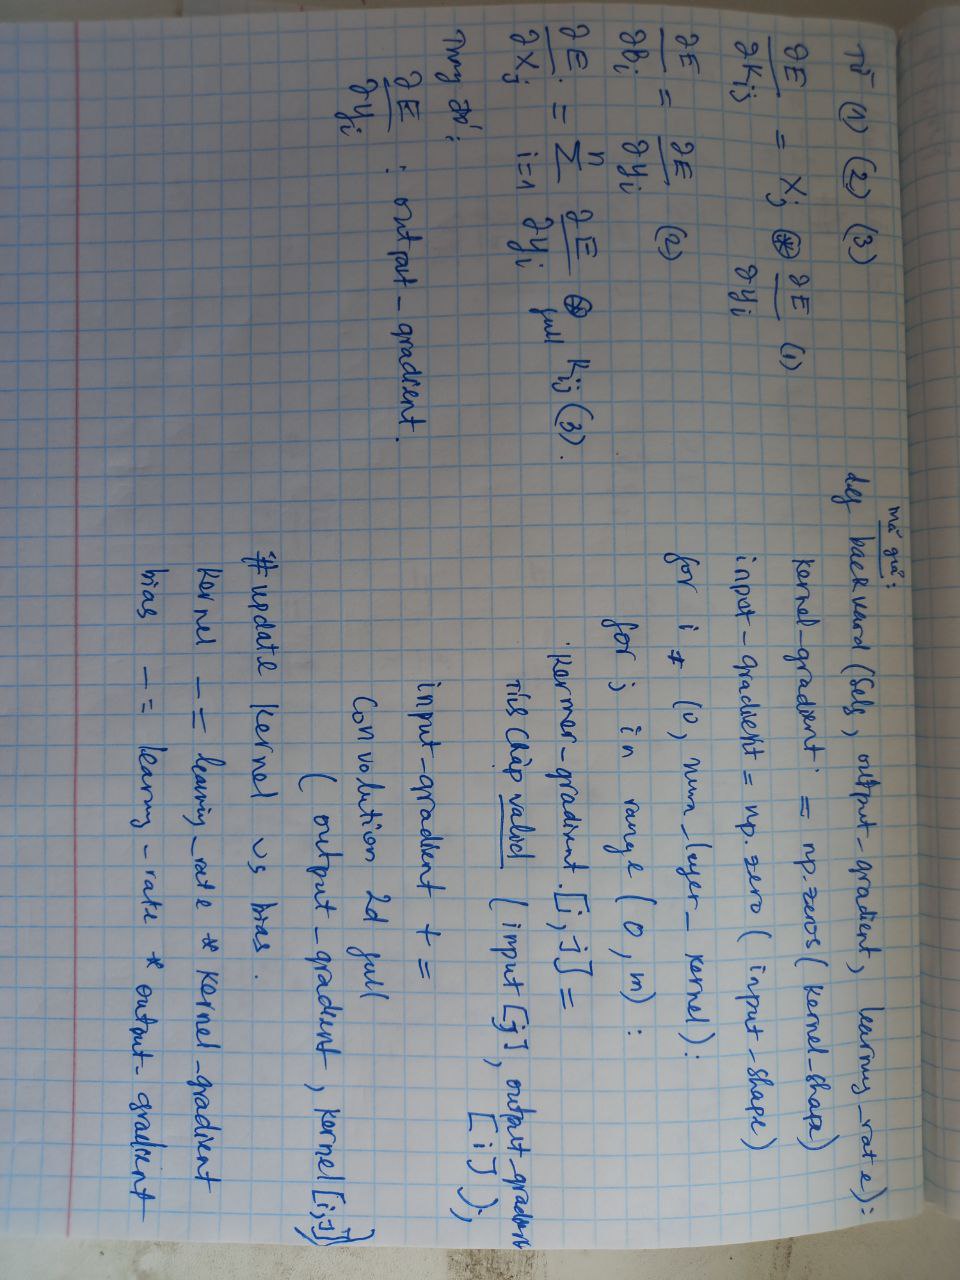 Từ (1) (2) (3)
∂E/∂Kij = Xj ⊛ ∂E/∂yi (1)
∂E/∂Bi = ∂E/∂yi (2)
∂E/∂Xj = Σ i=1 n ∂E/∂yi ⊛ full Kij (3).
Trong đó:
∂E/∂yi : output_gradient.
Mã giả:
def backward (self, output_gradient, learning_rate):
kernel_gradient = np.zeros( kernel_shape)
input_gradient = np.zero ( input_shape)
for i (0, num_layer_kernel):
for j in range ( 0, m) :
kermer_gradient.[i, j] =
Tích chập valid ( input [j], output_gradient
[i] );
input_gradient + =
Convolution 2d full
( output_gradient , kernel [i,j])
# update kernel vs bias .
kernel -= learning_rate * kernel_gradient
bias -= learning_rate * output_gradient